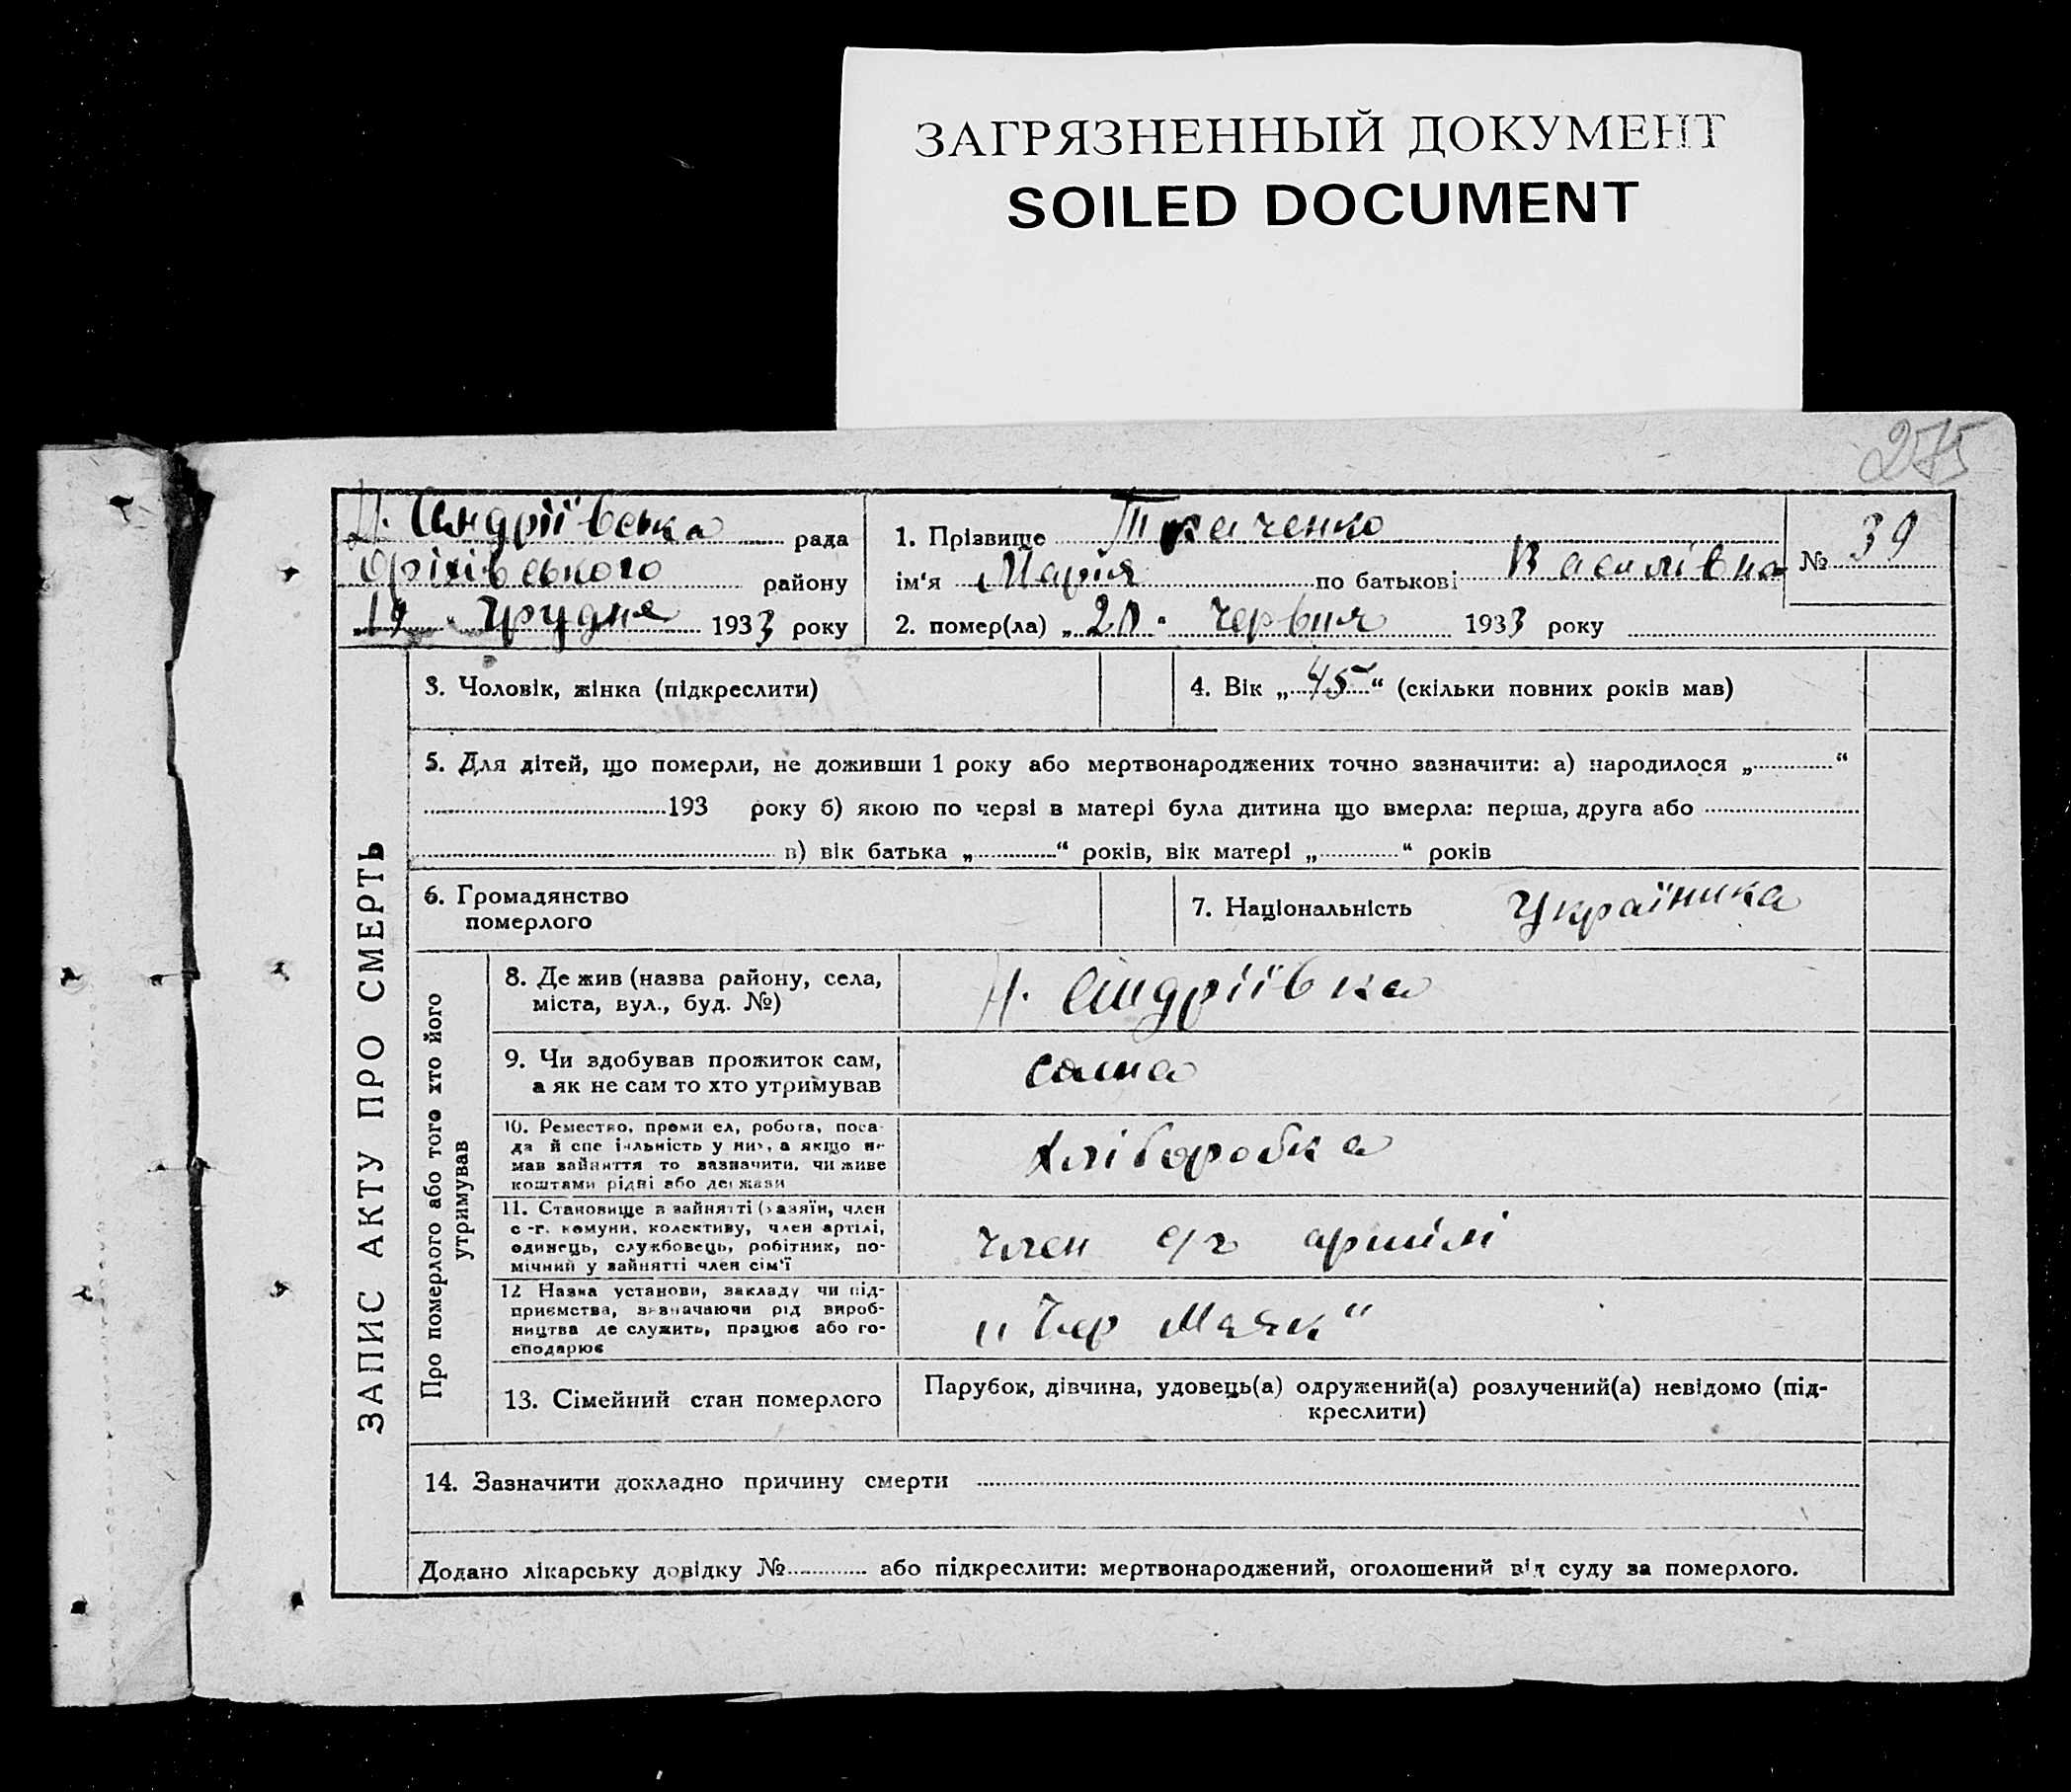 ЗАГРЯЗНЕННЫЙ ДОКУМЕНТ
SOILED DOCUMENT
275
Н. Андріївська рада
Оріхівського району
19 грудня 1933 року
1. Прізвище Ткаченко
ім'я Марія по батькові Василівна
№ 39
2. помер(ла) „20" червня 1933 року
ЗАПИС АКТУ ПРО СМЕРТЬ
3. Чоловік, жінка (підкреслити)
4. Вік „45“ (скільки повних років мав)
5. Для дітей, що померли, не доживши 1 року або мертвонароджених точно зазначити: а) народилося „ “
193 року б) якою по черзі в матері була дитина що вмерла: перша, друга або
в) вік батька „ “ років, вік матері „ “ років
6. Громадянство
померлого
7. Національність Українка
Про померлого або того хто його
утримував
8. Де жив (назва району, села,
міста, вул., буд. №)
Н. Андріївка
9. Чи здобував прожиток сам,
а як не сам то хто утримував
сама
10. Ремество, промисел, робота, поса-
да й спеціальність у них, а якщо не
мав зайняття то зазначити, чи живе
коштами рідні або держави
хліборобка
11. Становище в зайнятті (хазяїн, член
с-г. комуни, колективу, член артілі,
одинець, службовець, робітник, по-
мічний у зайнятті член сім'ї
член с/г артілі
12 Назва установи, закладу чи під-
приємства, зазначаючи рід вироб-
ництва де служить, працює або го-
сподарює
„Чер Маяк"
13. Сімейний стан померлого
Парубок, дівчина, удовець(а) одружений(а) розлучений(а) невідомо (під-
креслити)
14. Зазначити докладно причину смерти
Додано лікарську довідку № або підкреслити: мертвонароджений, оголошений від суду за померлого.